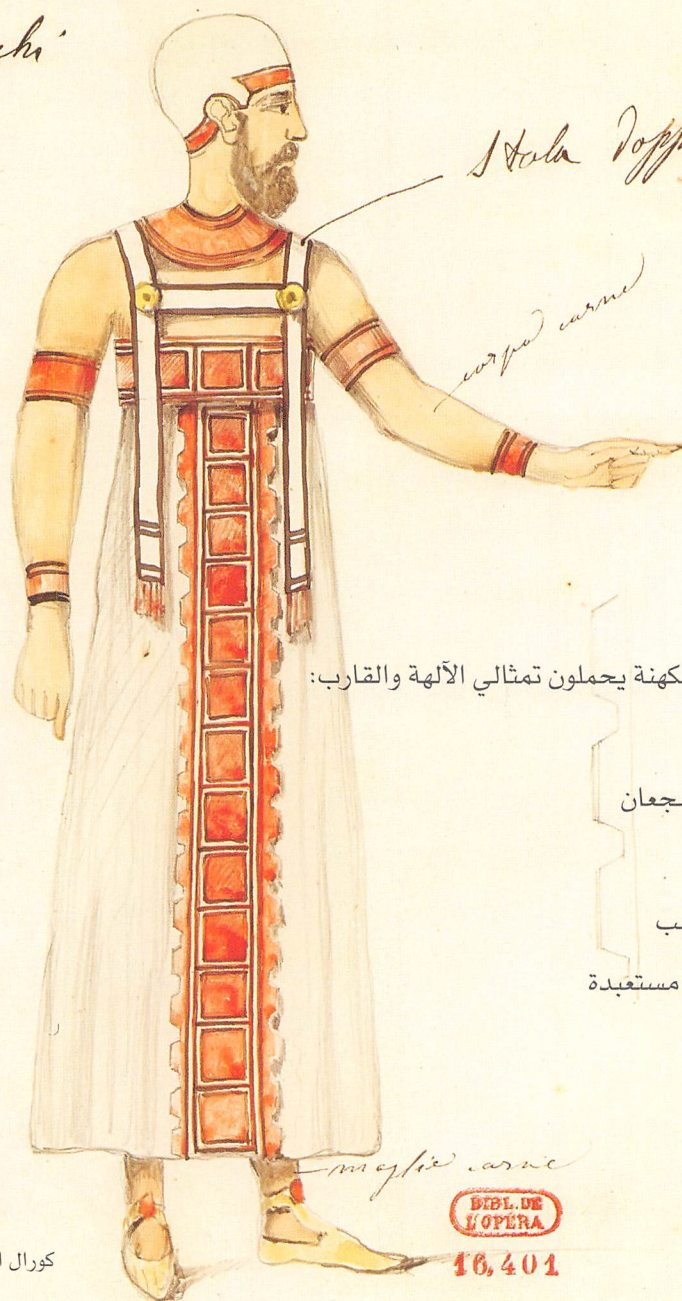 Stola dopp
corpo carne
كهنة يحملون تمثالي الآلهة والقارب:
جعان
ب
مستعبدة
maglie carne
BIBL. DE
L'OPÉRA
16,401
كورال ا